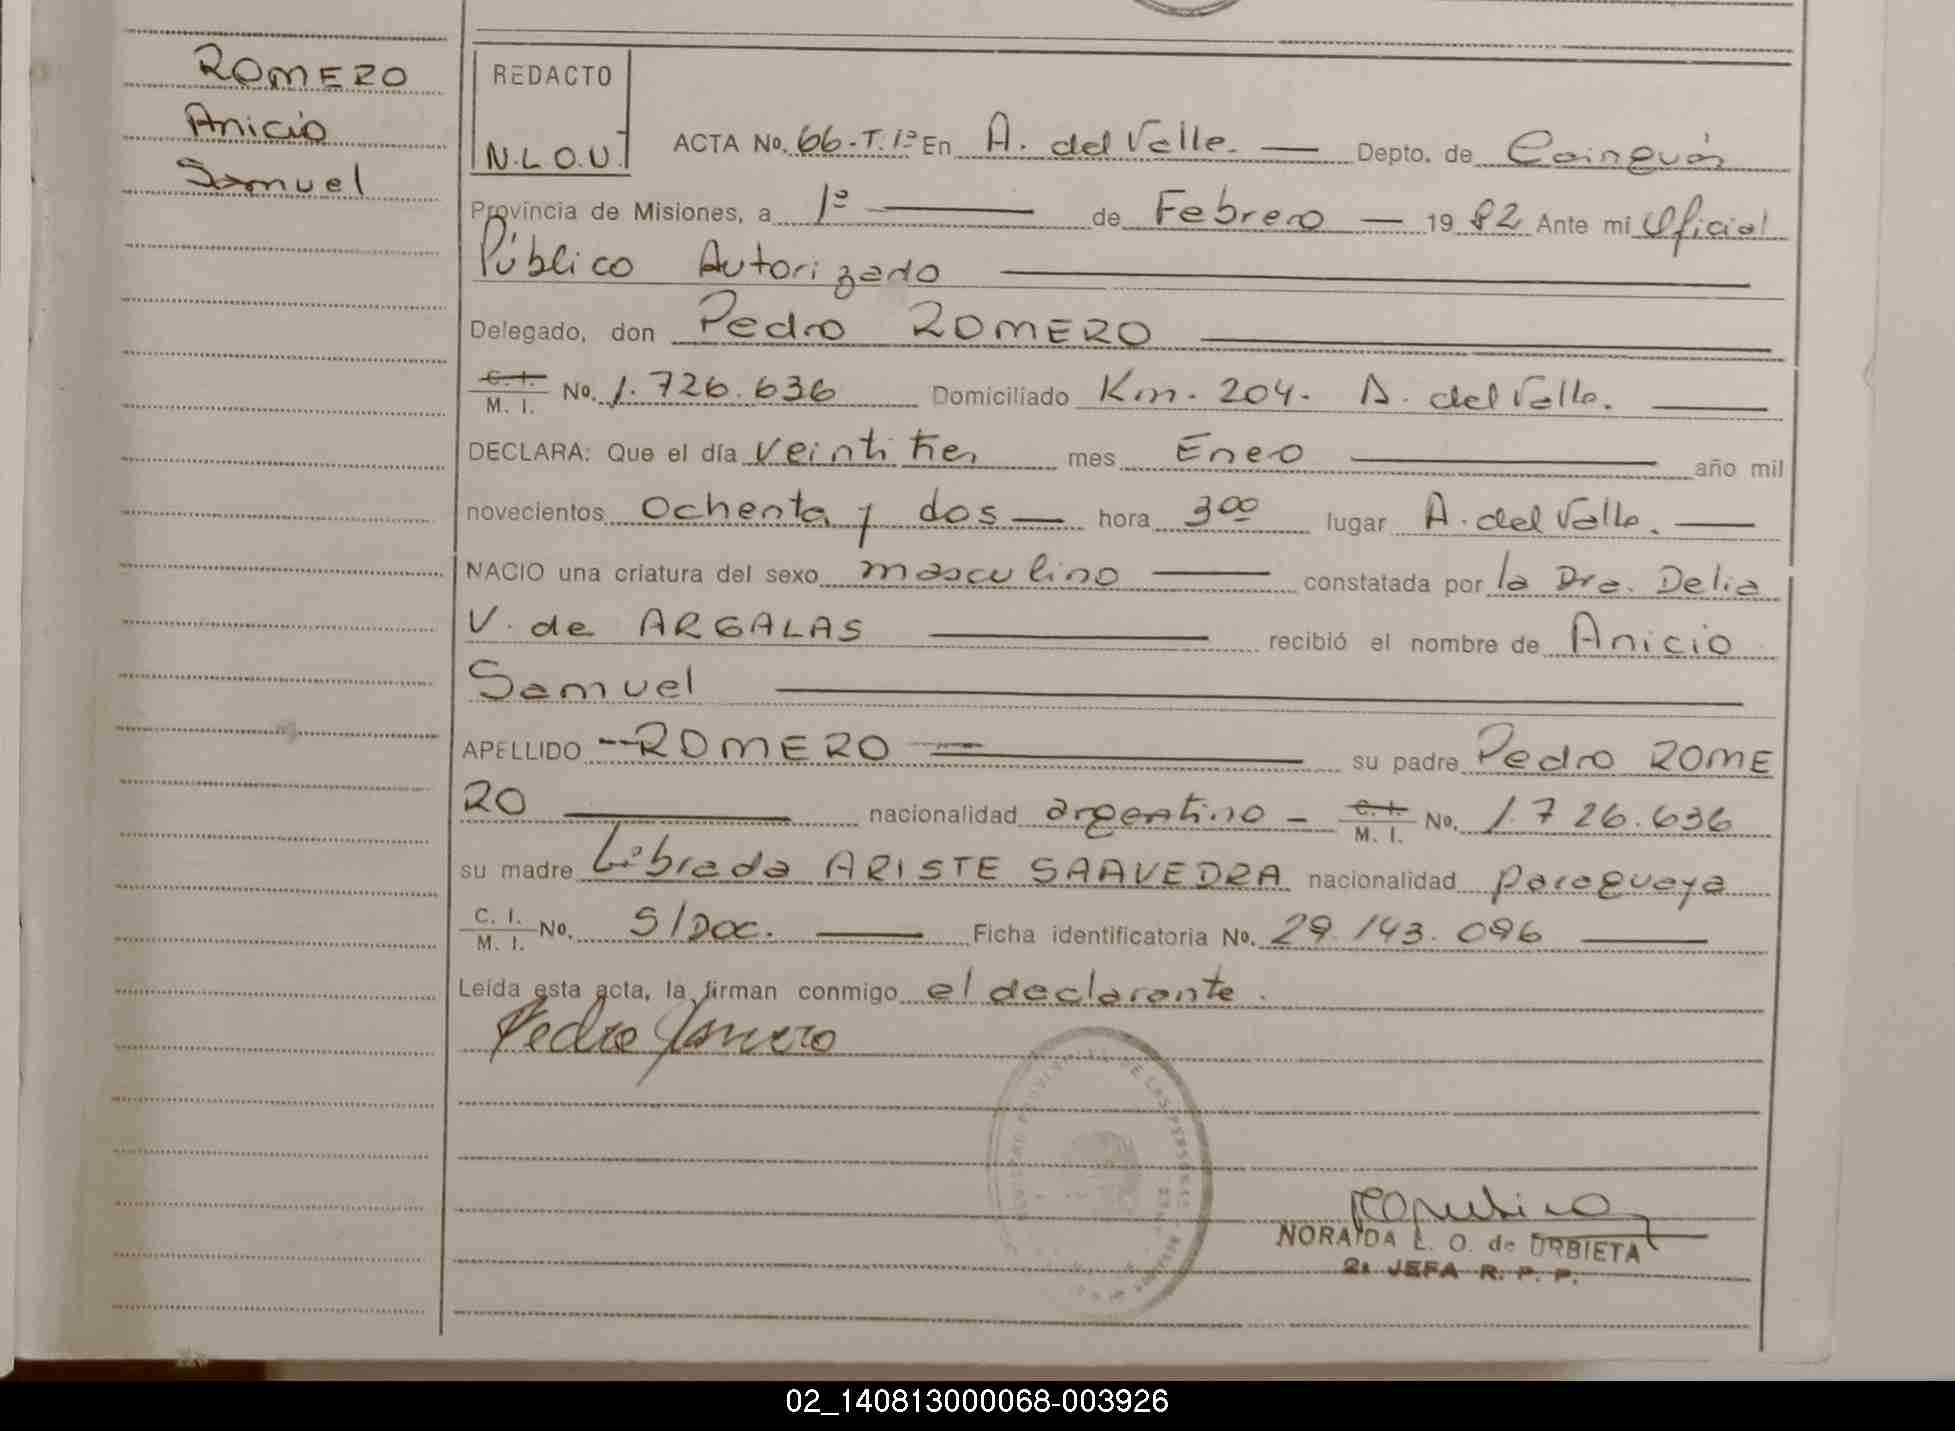 ROMERO
Anicio
Samuel
REDACTO
N.L.O.U.
ACTA No. 66-T.1º En A. del Valle. — Depto. de Cainguás
Provincia de Misiones, a 1º — de Febrero — 1982 Ante mi Oficial
Público Autorizado —
Delegado, don Pedro ROMERO —
C. I. / M. I. No. 1.726.636 Domiciliado Km. 204. A. del Valle. —
DECLARA: Que el día veintitres mes Enero — año mil
novecientos ochenta y dos — hora 3 00 lugar A. del Valle. —
NACIO una criatura del sexo masculino — constatada por la Dra. Delia
V. de ARGALAS — recibió el nombre de Anicio
Samuel —
APELLIDO -- ROMERO — su padre Pedro ROME
RO — nacionalidad argentino - C. I. / M. I. No. 1.726.636
su madre Librada ARISTE SAAVEDRA nacionalidad paraguaya
C. I. / M. I. No. S/Doc. — Ficha identificatoria No. 29.143.096 —
Leída esta acta, la firman conmigo el declarante.
Pedro Romero
NORAIDA L. O. de URBIETA
2ª JEFA R. P. P.
02_140813000068-003926